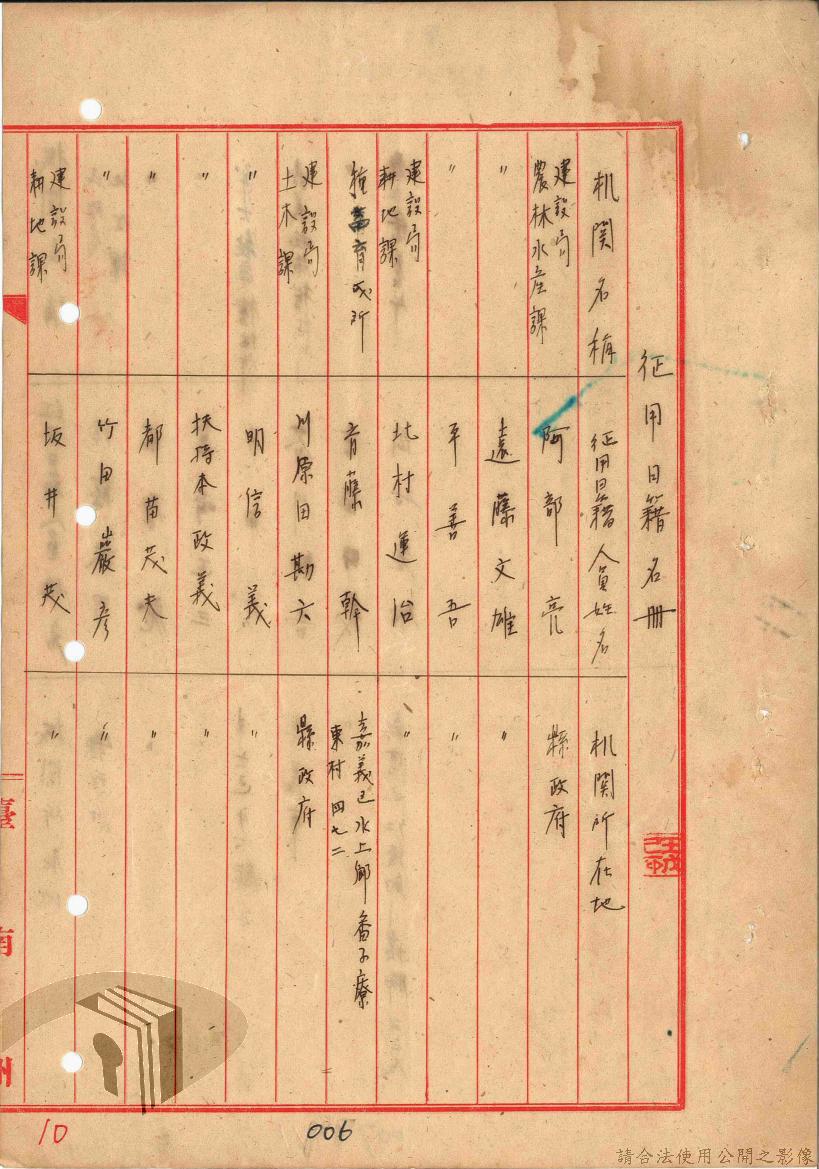 征用日籍名冊
机関名稱 征用日籍人員姓名 机関所在地
建設局農林水產課 阿部亮 縣政府
〃 遠藤文雄 〃
〃 平善吾 〃
建設局耕地課 北村運治 〃
種畜育成所 斉藤幹 嘉義区水上鄉番子寮東村四七二
建設局土木課 川原田勘六 縣政府
〃 明信義 〃
〃 扶持本政義 〃
〃 都苗茂夫 〃
〃 竹田巖彦 〃
建設局耕地課 坂井茂 〃
臺南州
10
006
請合法使用公開之影像